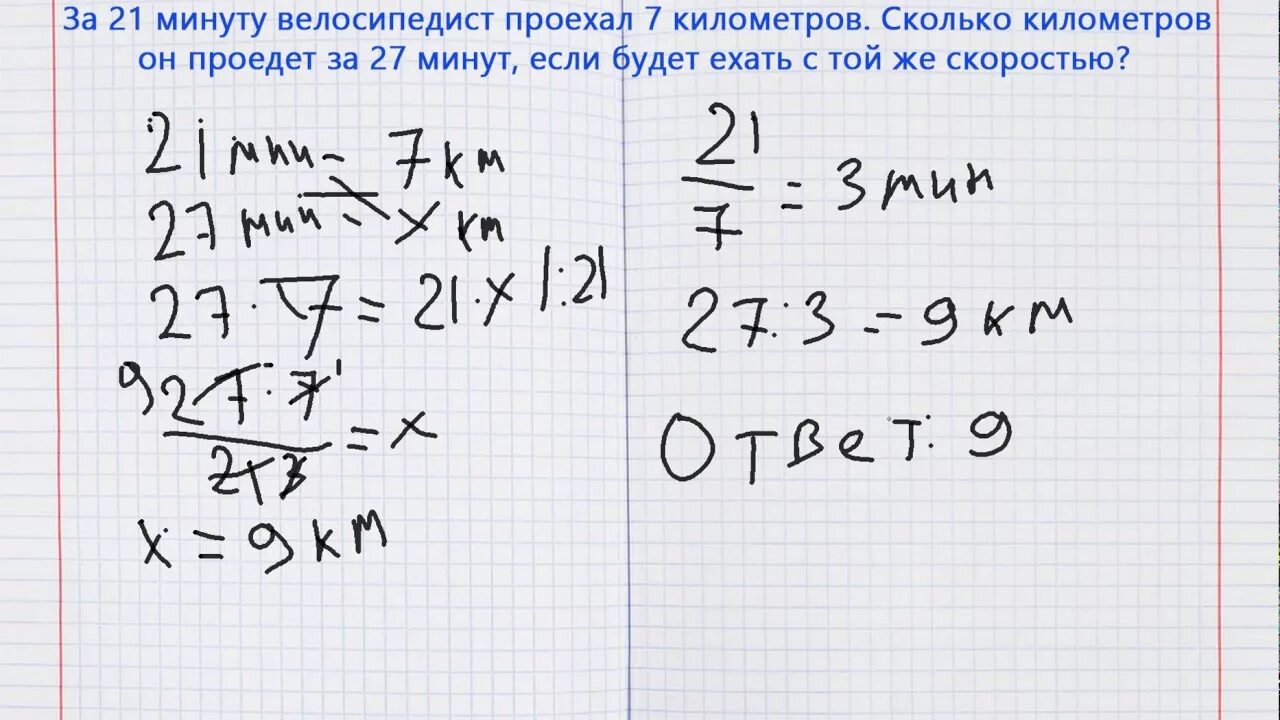 За 21 минуту велосипедист проехал 7 километров. Сколько километров
он проедет за 27 минут, если будет ехать с той же скоростью?
21 мин - 7 км
27 мин - х км
27 · 7 = 21 · х |:21
9 27 · 7 1
21 3
= х
х = 9 км
21
7
= 3 мин
27 : 3 = 9 км
Ответ: 9